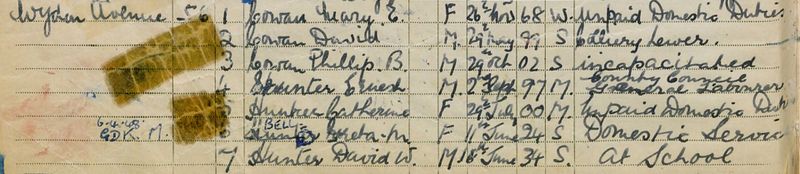 Wydon Avenue 56 1 Cowan Mary E. F 26th Nov 68 W. Unpaid Domestic Dutie
2 Cowan David M 29th May 99 S Colliery Hewer.
3 Cowan Phillip. B. M 29th Oct 02 S incapacitated
4 Hunter Ernest M 2nd Sept 97 M. County Council General Labourer
5 Hunter Catherine F 26th July 00 M. Unpaid Domestic Duti
6.4.48. CDK M. 6 Hunter BELL Greta. M. F 11th June 24 S Domestic Servic
7 Hunter David W. M 18th June 34 S. At School